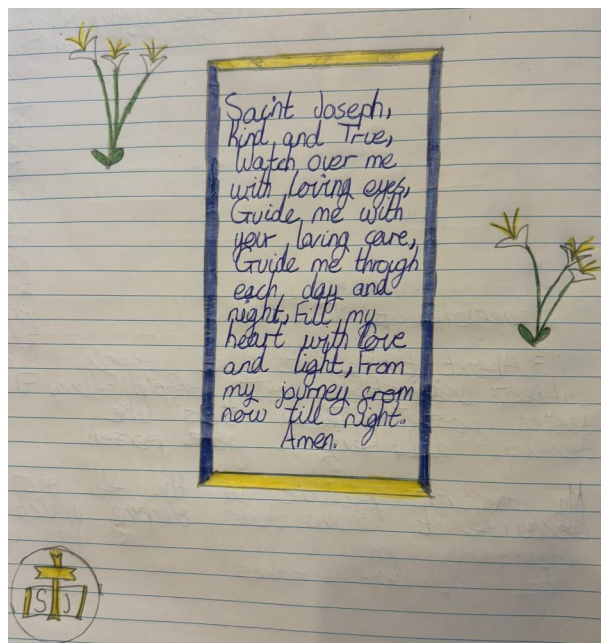 Saint Joseph,
Kind and True,
Watch over me
with loving eyes,
Guide me with
your loving care,
Guide me through
each day and
night, Fill my
heart with Love
and light, From
my journey from
now till night.
Amen.
S J